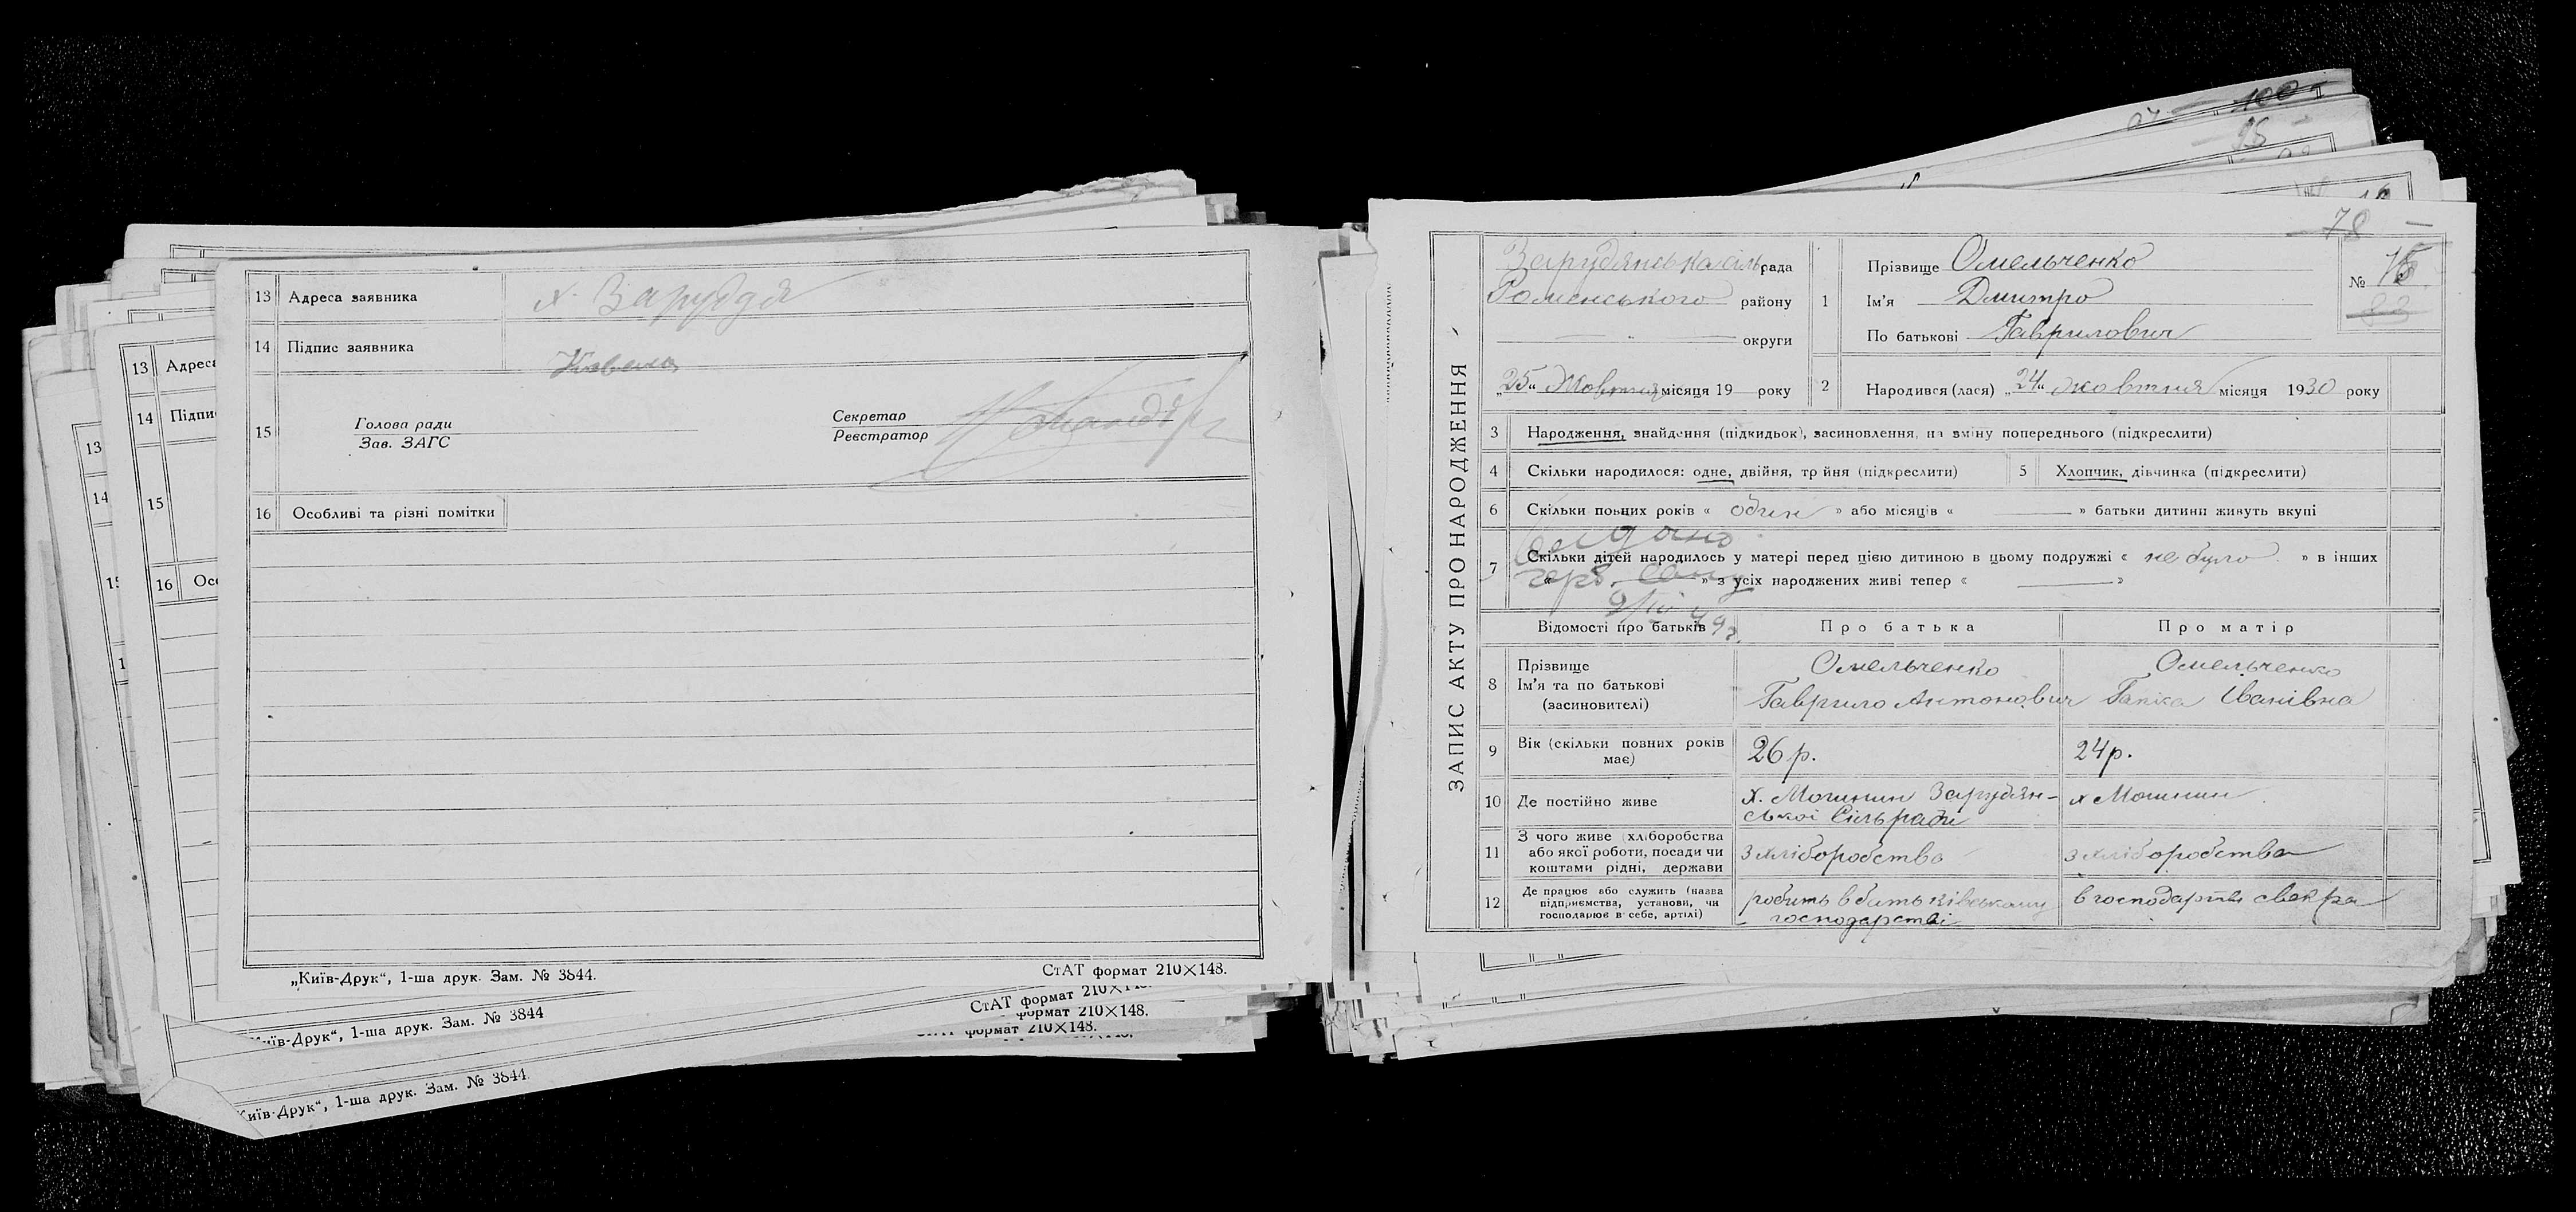 13 Адреса заявника х. Заруддя
14 Підпис заявника
15
Голова ради
Зав. ЗАГС
Секретар
Реєстратор
16 Особливі та різні помітки
„Київ-Друк“, 1-ша друк. Зам. № 3844.
СтАТ формат 210×148.
13 Адреса
14
15
16
13
14
„Київ-Друк“, 1-ша друк. Зам. № 3844
СтАТ формат
формат 210×148.
формат 210×148.
Київ-Друк“, 1-ша друк. Зам. № 3844.
100
95
78
ЗАПИС АКТУ ПРО НАРОДЖЕННЯ
Зарудянська сільрада
Роменського району
округи
„25“ Жовтня місяця 19 року
1
Прізвище Омельченко
Ім’я Дмитро
По батькові Гаврилович
№
2 Народився (лася) „24“ жовтня місяця 1930 року
3 Народження, знайдення (підкидьок), засиновлення, на зміну попереднього (підкреслити)
4 Скільки народилося: одне, двійня, тр йня (підкреслити)
5 Хлопчик, дівчинка (підкреслити)
6 Скільки повних років « один » або місяців « » батьки дитини живуть вкупі
7 Скільки дітей народилось у матері перед цією дитиною в цьому подружжі « не було » в інших
« » з усіх народжених живі тепер « »
Відомості про батьків
Про батька
Про матір
8 Прізвище
Ім’я та по батькові
(засиновителі)
Омельченко
Гаврило Антонович
Омельченко
Гапка Іванівна
9 Вік (скільки повних років
має)
26 р.
24 р.
10 Де постійно живе
х. Зарудян-
ської Сільради
х
11 З чого живе (хліборобства
або якої роботи, посади чи
коштами рідні, держави
з хліборобства
з хліборобства
12 Де працює або служить (назва
підприємства, установи, чи
господарює в себе, артілі)
робить в батьківському
господарстві
в господарстві свекра